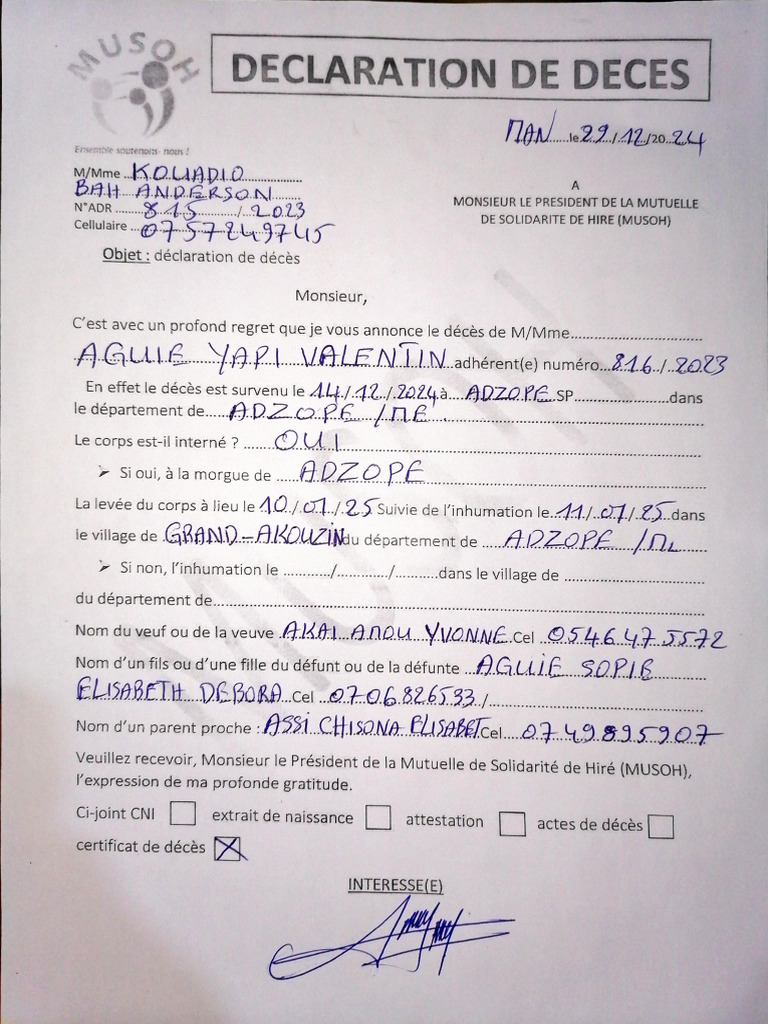 MUSOH
DECLARATION DE DECES
Ensemble soutenons- nous !
MAN le 29/12/2024
M/Mme KOUADIO
BAH ANDERSON
N°ADR 815/2023
Cellulaire 0757249745
A
MONSIEUR LE PRESIDENT DE LA MUTUELLE
DE SOLIDARITE DE HIRE (MUSOH)
Objet : déclaration de décès
Monsieur,
C'est avec un profond regret que je vous annonce le décès de M/Mme
AGUIE YAPI VALENTIN adhérent(e) numéro 816/2023
En effet le décès est survenu le 14/12/2024 à ADZOPE SP dans
le département de ADZOPE /ME.
Le corps est-il interné ? OUI
➢ Si oui, à la morgue de ADZOPE
La levée du corps à lieu le 10/01/25 Suivie de l'inhumation le 11/01/25 dans
le village de GRAND-AKOUZIN du département de ADZOPE /
➢ Si non, l'inhumation le / / dans le village de
du département de
Nom du veuf ou de la veuve AKAI ANOU YVONNE Cel 0546475572
Nom d'un fils ou d'une fille du défunt ou de la défunte AGUIE SOPIE
ELISABETH DEBORA Cel 0706826533 /
Nom d'un parent proche : ASSI CHISONA ELISABET Cel 0749895907
Veuillez recevoir, Monsieur le Président de la Mutuelle de Solidarité de Hiré (MUSOH),
l'expression de ma profonde gratitude.
Ci-joint CNI extrait de naissance attestation actes de décès
certificat de décès
INTERESSE(E)